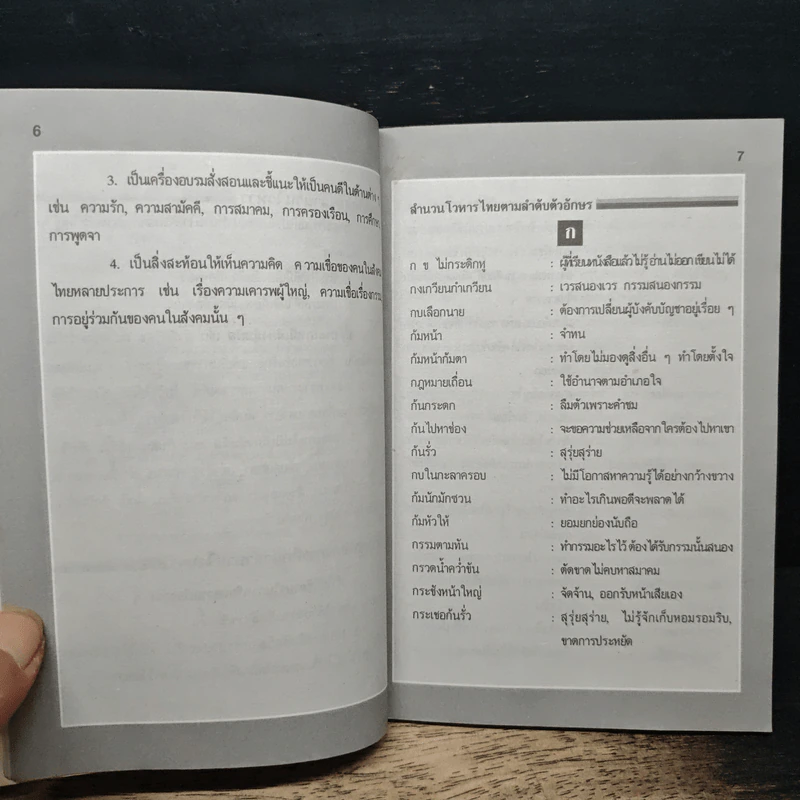 6
3. เป็นเครื่องอบรมสั่งสอนและชี้แนะให้เป็นคนดีในด้านต่าง ๆ
เช่น ความรัก, ความสามัคคี, การสมาคม, การครองเรือน, การศึกษา,
การพูดจา
4. เป็นสิ่งสะท้อนให้เห็นความคิด ความเชื่อของคนในสังคม
ไทยหลายประการ เช่น เรื่องความเคารพผู้ใหญ่, ความเชื่อเรื่องกรรม
การอยู่ร่วมกันของคนในสังคมนั้น ๆ
7
สำนวนโวหารไทยตามลำดับตัวอักษร
ก
ก ข ไม่กระดิกหู : ผู้ที่เรียนหนังสือแล้วไม่รู้ อ่านไม่ออก เขียนไม่ได้
กงเกวียนกำเกวียน : เวรสนองเวร กรรมสนองกรรม
กบเลือกนาย : ต้องการเปลี่ยนผู้บังคับบัญชาอยู่เรื่อย ๆ
ก้มหน้า : จำทน
ก้มหน้าก้มตา : ทำโดยไม่มองดูสิ่งอื่น ๆ ทำโดยตั้งใจ
กฎหมายเถื่อน : ใช้อำนาจตามอำเภอใจ
ก้นกระดก : ลืมตัวเพราะคำชม
ก้นไปหาช่อง : จะขอความช่วยเหลือจากใครต้องไปหาเขา
ก้นรั่ว : สุรุ่ยสุร่าย
กบในกะลาครอบ : ไม่มีโอกาสหาความรู้ได้อย่างกว้างขวาง
ก้มนักมักซวน : ทำอะไรเกินพอดีจะพลาดได้
ก้มหัวให้ : ยอมยกย่องนับถือ
กรรมตามทัน : ทำกรรมอะไรไว้ ต้องได้รับกรรมนั้นสนอง
กรวดน้ำคว่ำขัน : ตัดขาดไม่คบหาสมาคม
กระชังหน้าใหญ่ : จัดจ้าน, ออกรับหน้าเสียเอง
กระเชอก้นรั่ว : สุรุ่ยสุร่าย, ไม่รู้จักเก็บหอมรอมริบ,
ขาดการประหยัด